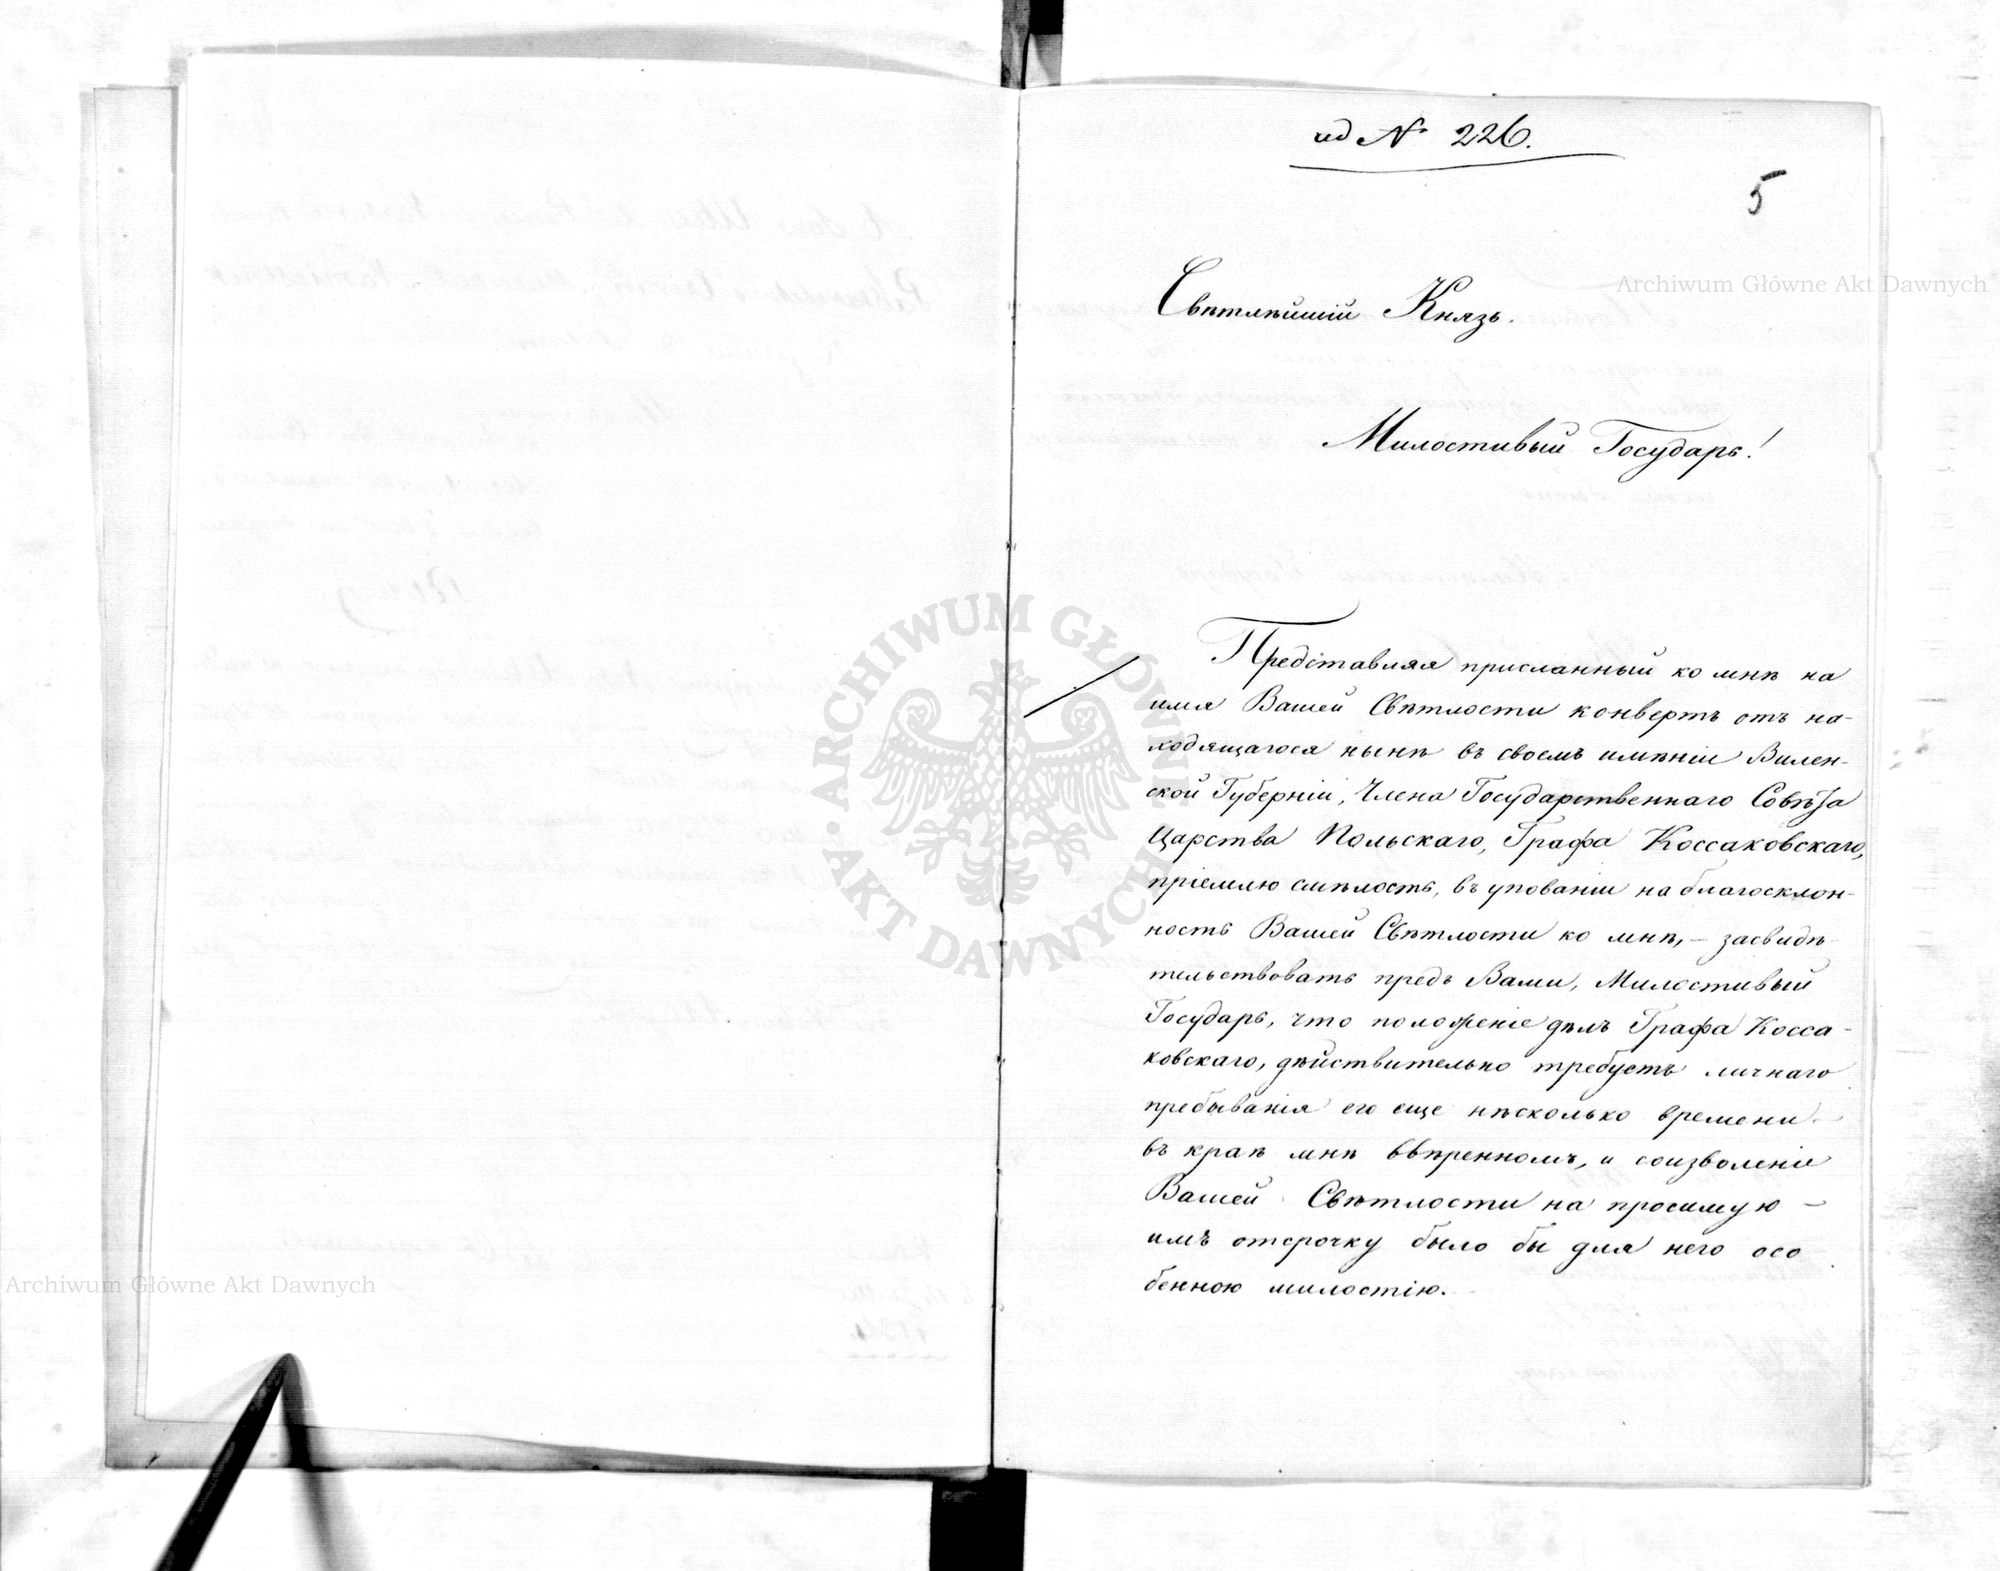 ad № 226.
5
Свѣтлѣйшій Князь.
Милостивый Государь!
Представляя присланный ко мнѣ на
имя Вашей Свѣтлости конвертъ отъ на-
ходящагося нынѣ въ своемъ имѣніи Вилен-
ской Губерніи, Члена Государственнаго Совѣта
Царства Польскаго, Графа Коссаковскаго,
пріемлю смѣлость, въ упованіи на благосклон-
ность Вашей Свѣтлости ко мнѣ, – засвидѣ-
тельствовать предъ Вами, Милостивый
Государь, что положеніе дѣлъ Графа Косса-
ковскаго, дѣйствительно требуетъ личнаго
пребыванія его еще нѣсколько времени
въ краѣ мнѣ ввѣренномъ, и соизволеніе
Вашей Свѣтлости на просимую –
имъ отсрочку было бы для него осо
бенною милостію.
Archiwum Główne Akt Dawnych
Archiwum Główne Akt Dawnych
ARCHIWUM GŁÓWNE • AKT DAWNYCH